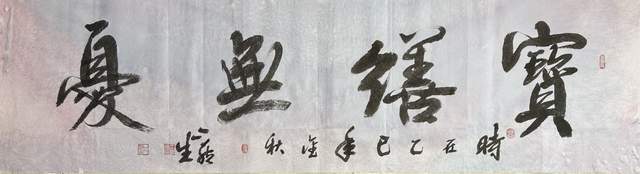 寶繕無憂
時在乙巳年金秋